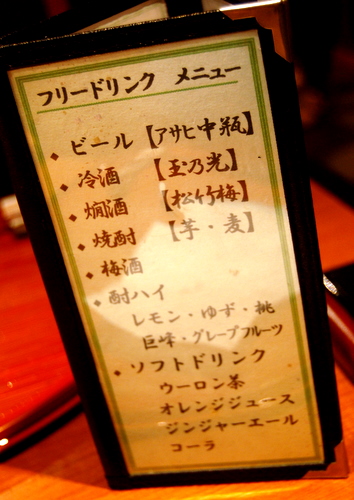 フリードリンク メニュー
ビール【アサヒ中瓶】
冷酒【玉乃光】
燗酒【松竹梅】
焼酎【芋・麦】
梅酒
酎ハイ
レモン・ゆず・桃
巨峰・グレープフルーツ
ソフトドリンク
ウーロン茶
オレンジジュース
ジンジャーエール
コーラ